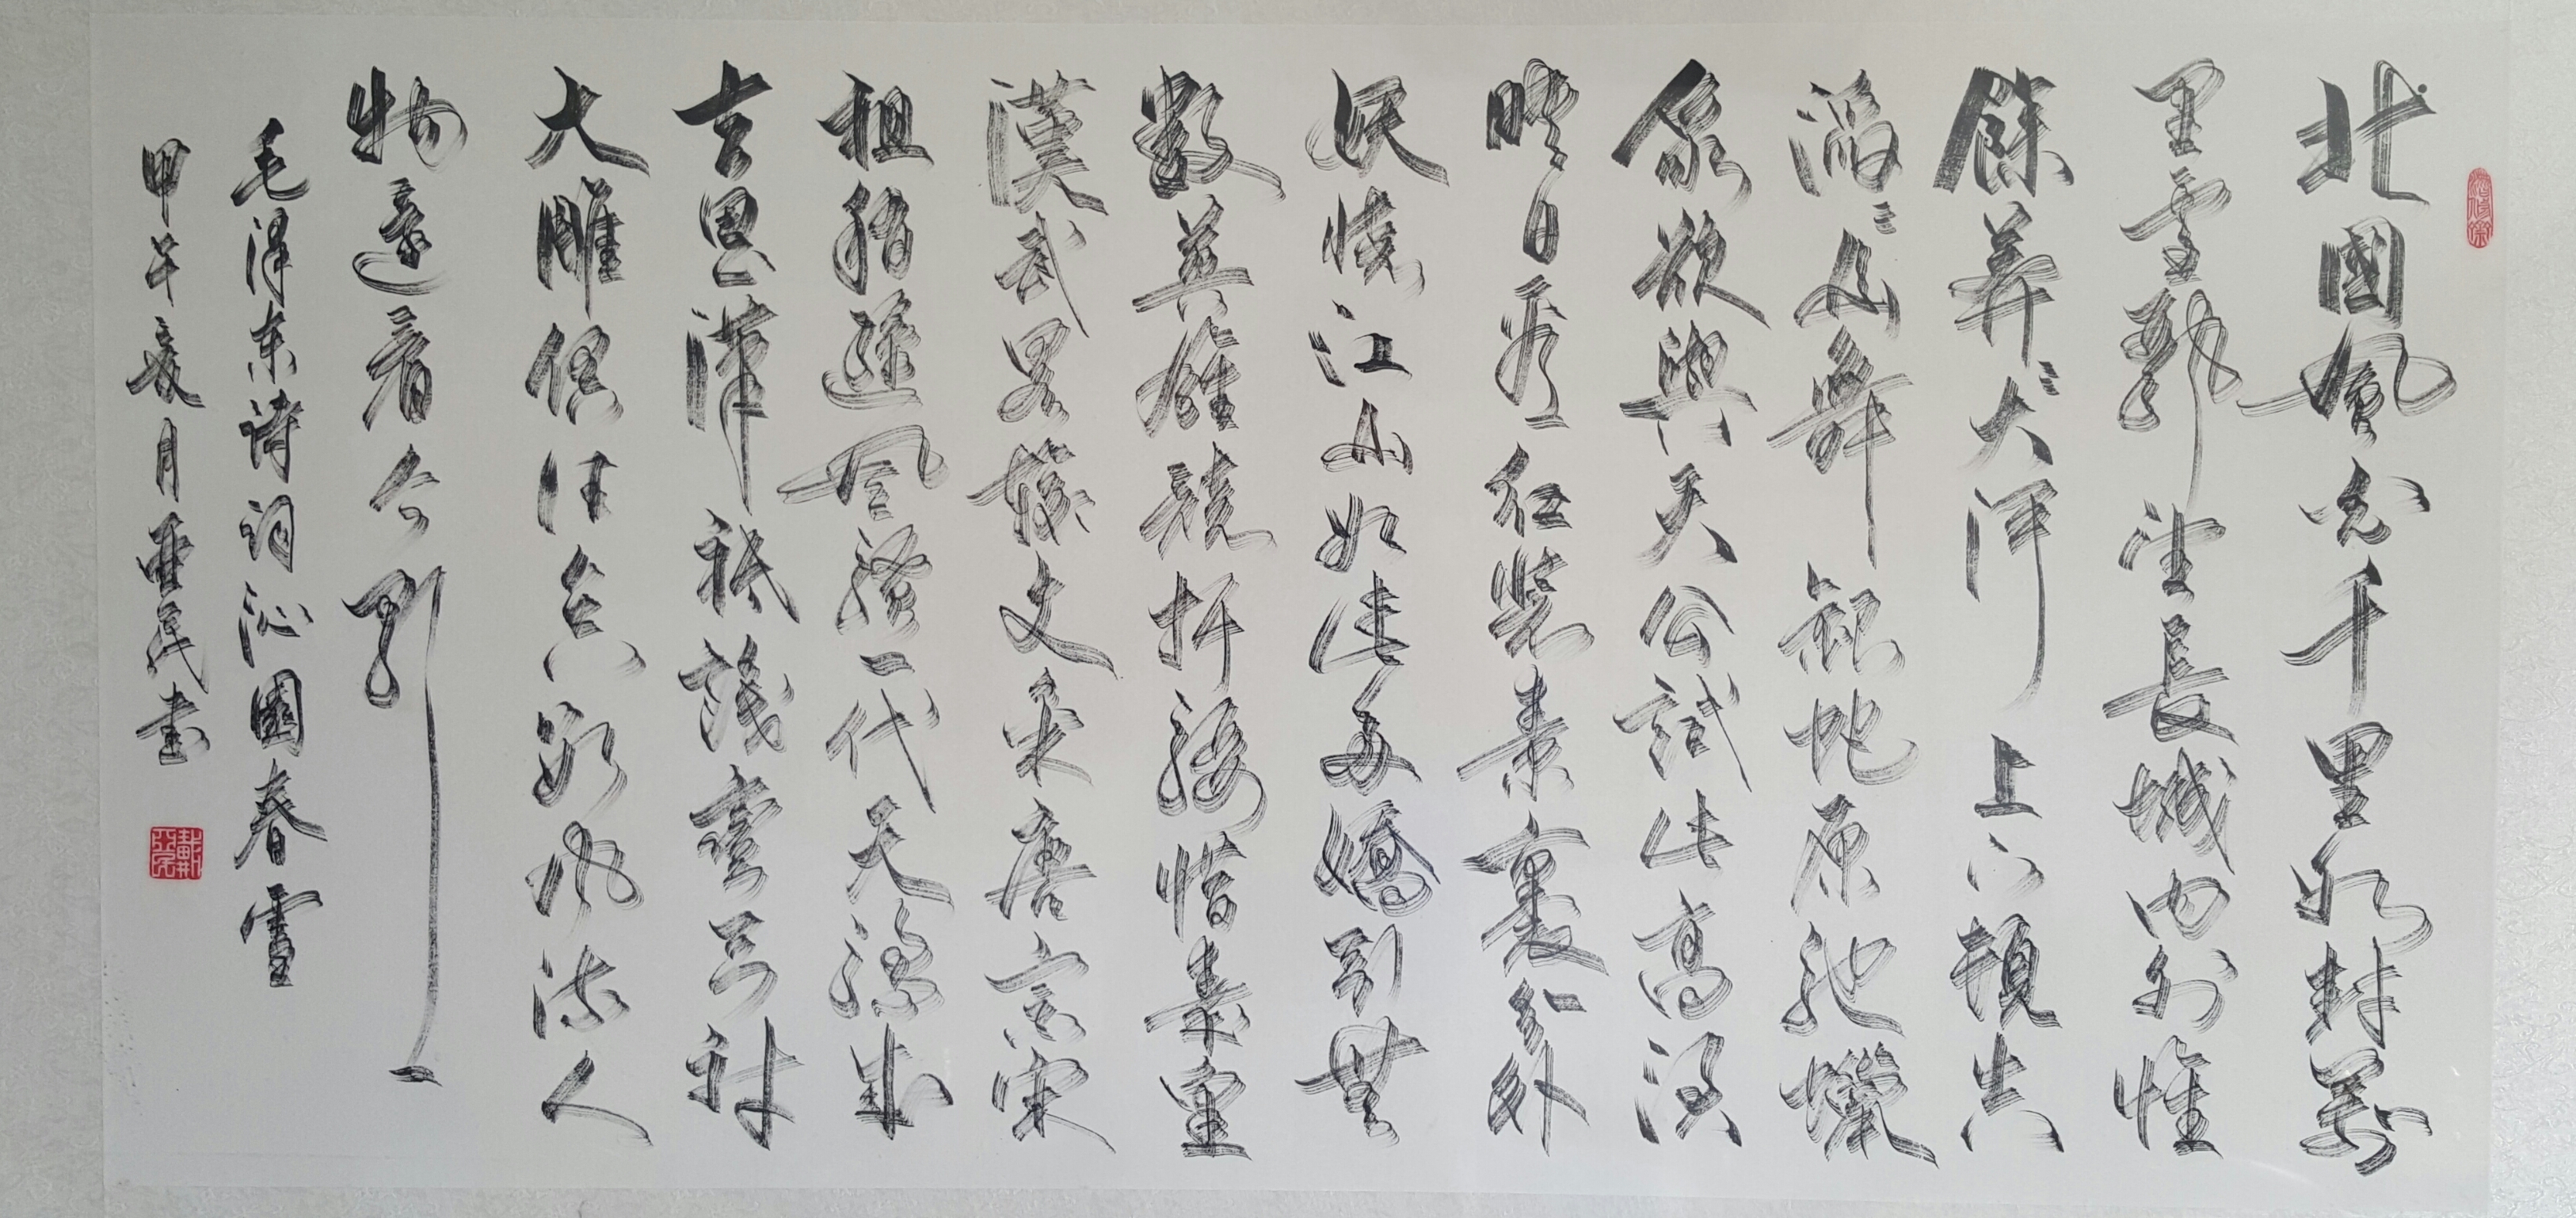 北國風光千里冰封萬
里雪飄望長城內外惟
餘莽々大河上下頓失
滔々山舞銀蛇原馳蠟
象欲與天公試比高須
晴日看紅裝素裹分外
妖嬈江山如此多嬌引無
數英雄競折腰惜秦皇
漢武略輸文采唐宗宋
祖稍遜風騷一代天驕成
吉思汗祇識彎弓射
大雕俱往矣數風流人
物還看今朝
毛澤东詩詞沁園春雪
甲午夏月亞民書
靳亞民